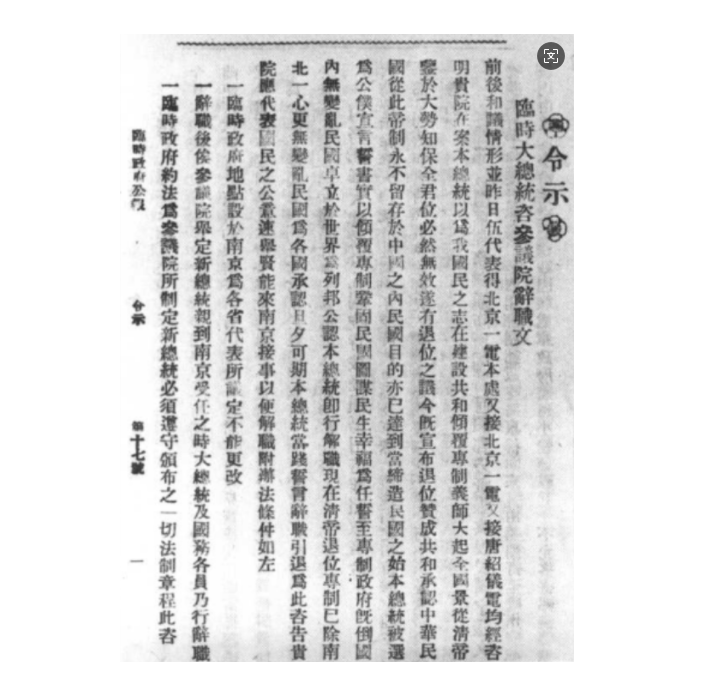 令示
臨時大總統咨參議院辭職文
前後和議情形並昨日伍代表得北京一電本處又接北京一電又接唐紹儀電均經咨
明貴院在案本總統以爲我國民之志在建設共和傾覆專制義師大起全國景從清帝
鑒於大勢知保全君位必然無效遂有退位之議今既宣布退位贊成共和承認中華民
國從此帝制永不留存於中國之內民國目的亦已達到當締造民國之始本總統被選
爲公僕宣言誓書實以傾覆專制鞏固民國圖謀民生幸福爲任誓至專制政府既倒國
內無變亂民國卓立於世界爲列邦公認本總統即行解職現在清帝退位專制已除南
北一心更無變亂民國爲各國承認旦夕可期本總統當踐誓言辭職引退爲此咨告貴
院應代表國民之公意速舉賢能來南京接事以便解職附辦法條件如左
一臨時政府地點設於南京爲各省代表所議定不能更改
一辭職後俟參議院舉定新總統親到南京受任之時大總統及國務各員乃行辭職
一臨時政府約法爲參議院所制定新總統必須遵守頒布之一切法制章程此咨
臨時政府公報 令示 第十七號 一